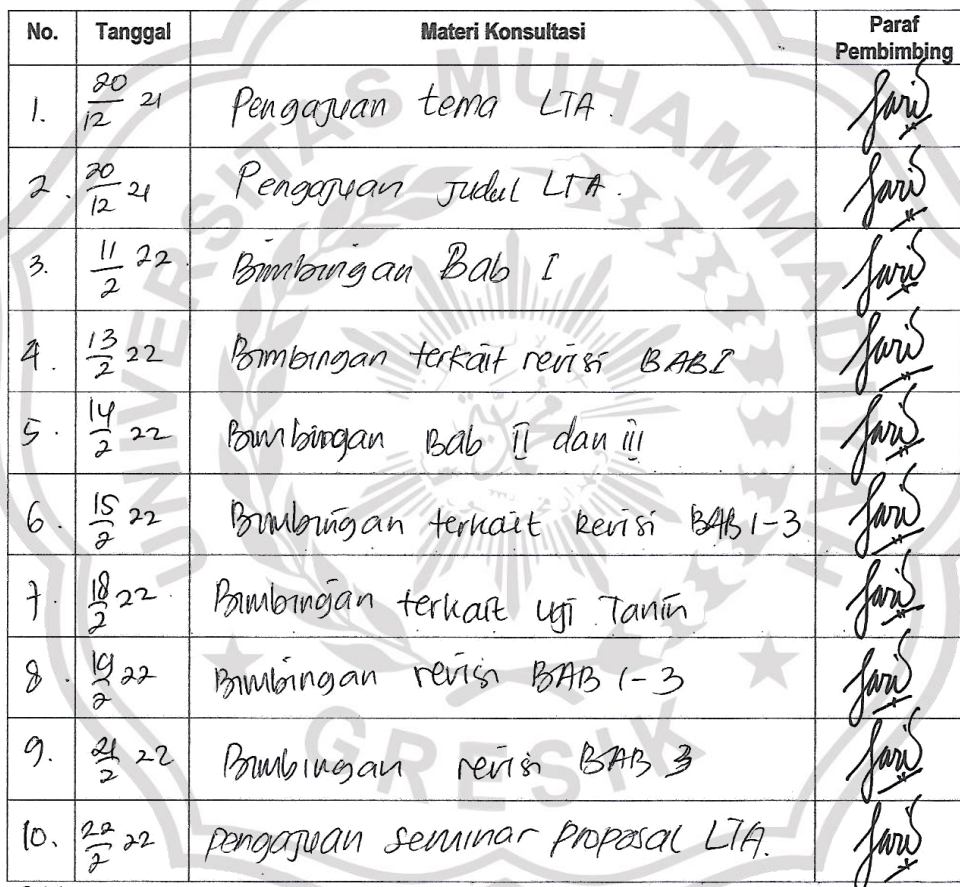 No. Tanggal Materi Konsultasi Paraf Pembimbing
1. 20/12 21 Pengajuan tema LTA.
2. 20/12 21 Pengajuan Judul LTA.
3. 11/2 22. Bimbingan Bab I
4. 13/2 22 Bimbingan terkait revisi BAB I
5. 14/2 22 Bimbingan Bab II dan iii
6. 15/2 22 Bimbingan terkait Revisi BAB 1-3
7. 18/2 22. Bimbingan terkait uji Tanin
8. 19/2 22 Bimbingan revisi BAB 1-3
9. 21/2 22 Bimbingan revisi BAB 3
10. 22/2 22 pengajuan seminar Proposal LTA.
UNIVERSITAS MUHAMMADIYAH
GRESIK